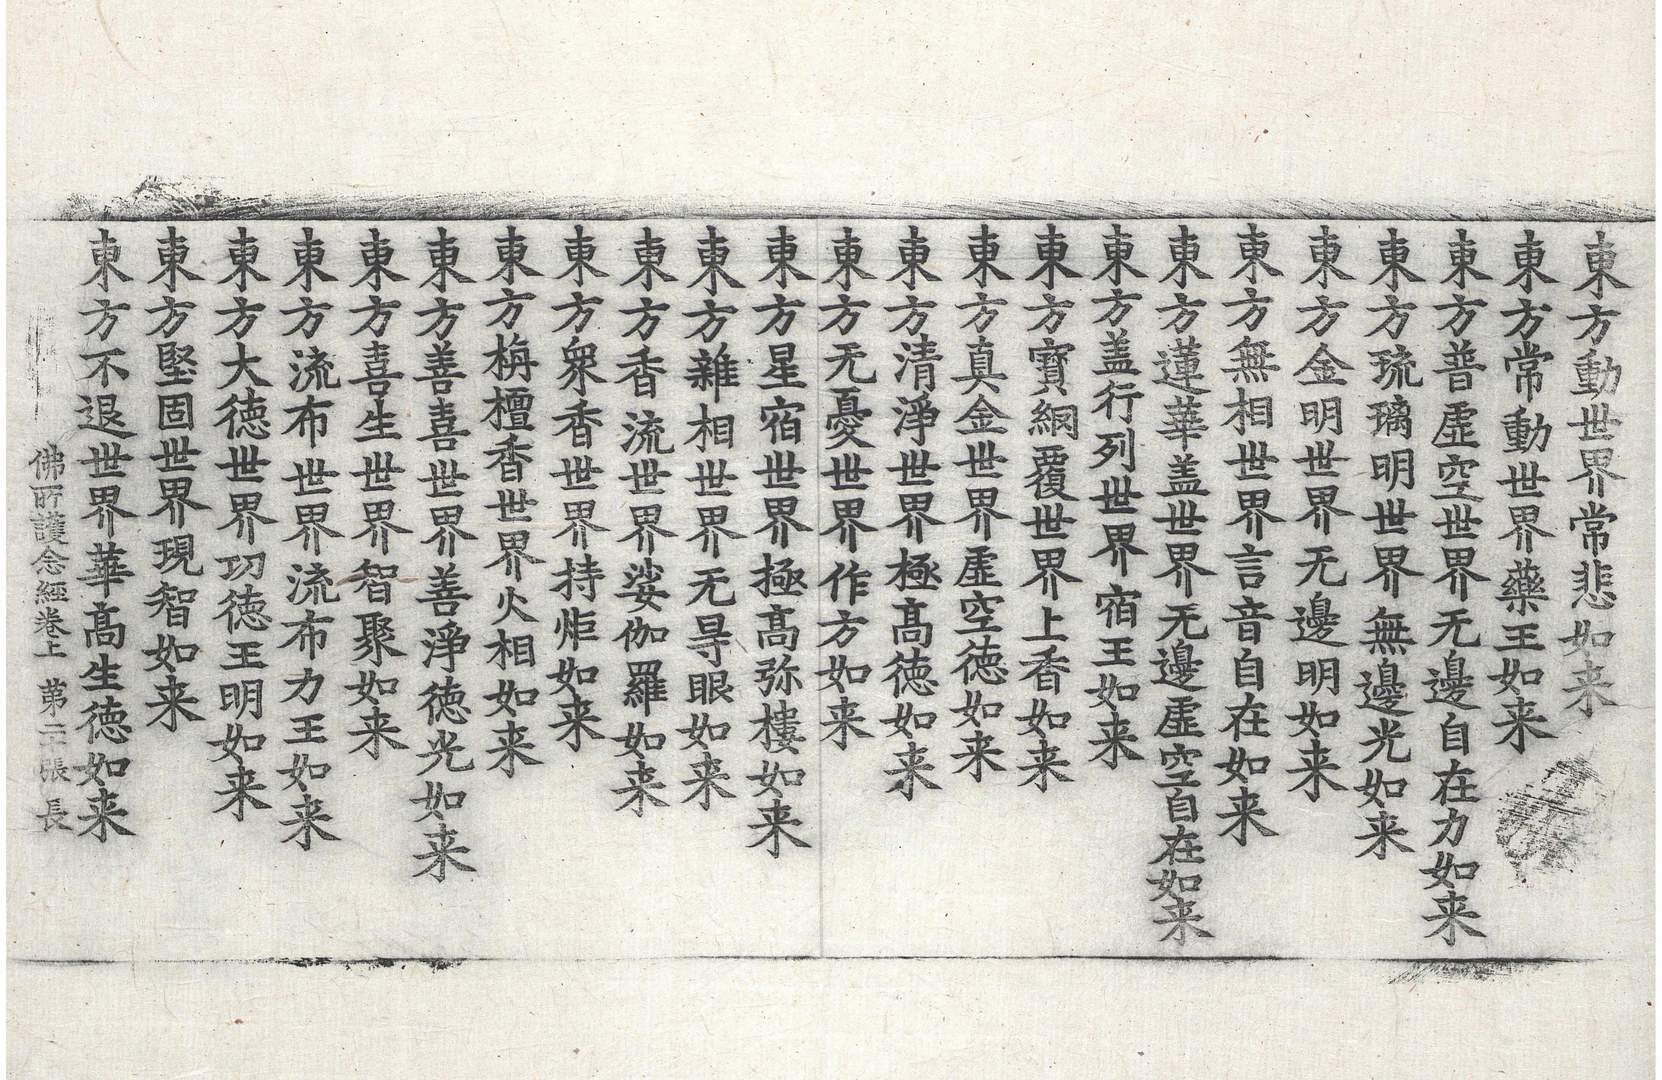 東方動世界常悲如来
東方常動世界藥王如来
東方普虚空世界无邊自在力如来
東方琉璃明世界無邊光如来
東方金明世界无邊明如来
東方無相世界言音自在如来
東方蓮華盖世界无邊虚空自在如来
東方盖行列世界宿王如来
東方寶網覆世界上香如来
東方真金世界虚空徳如来
東方清淨世界極髙徳如来
東方无憂世界作方如来
東方星宿世界極髙弥樓如来
東方雜相世界无㝵眼如来
東方香流世界娑伽羅如来
東方衆香世界持炬如来
東方栴檀香世界火相如来
東方善喜世界善淨徳光如来
東方喜生世界智聚如来
東方流布世界流布力王如来
東方大徳世界功徳王明如来
東方堅固世界現智如来
東方不退世界華髙生徳如来
佛所護念經卷上 第二十張 長